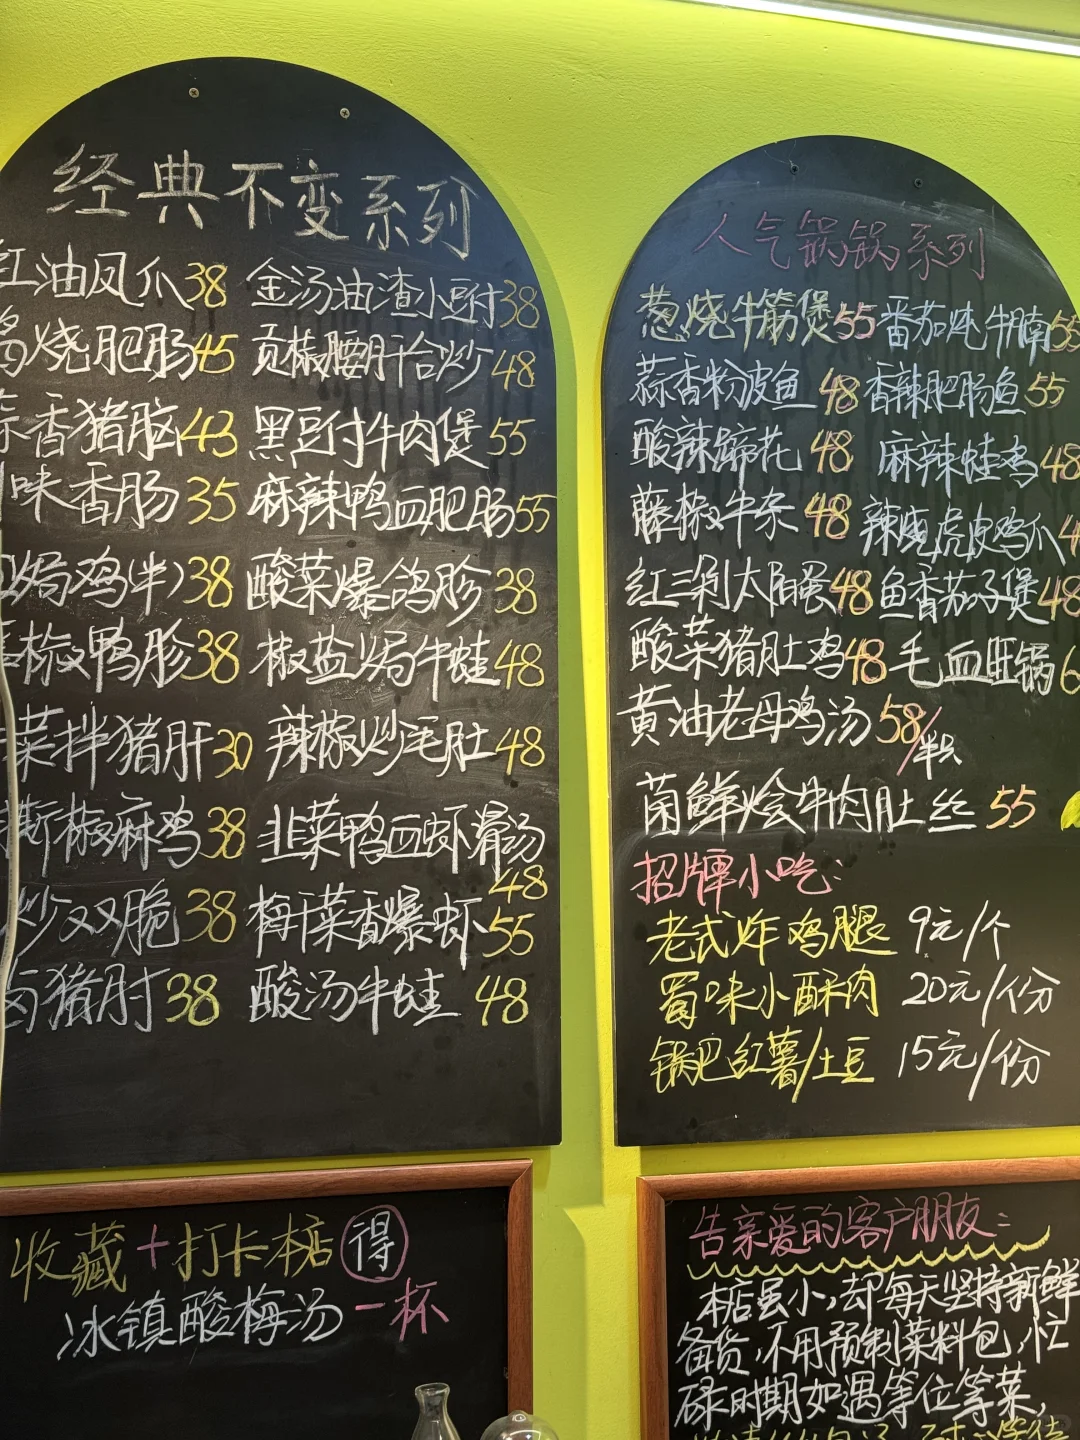 经典不变系列
红油凤爪38 金汤油渣小豆付38
烧肥肠45 贡椒腰肝合炒48
蒜香猪脑43 黑豆付牛肉煲55
味香肠35 麻辣鸭血肥肠55
焗鸡(半)38 酸菜爆鸽胗38
椒鸭胗38 椒盐焗牛蛙48
菜拌猪肝30 辣椒炒毛肚48
椒麻鸡38 韭菜鸭血虾滑汤48
炒双脆38 梅干菜香爆虾55
卤猪肘38 酸汤牛蛙48
人气锅锅系列
葱烧牛筋煲55 番茄炖牛腩55
蒜香粉皮鱼48 香辣肥肠鱼55
酸辣蹄花48 麻辣蛙鸡48
藤椒牛杂48 辣烧虎皮鸡爪4
红三剁太阳蛋48 鱼香茄子煲48
酸菜猪肚鸡48 毛血旺锅6
黄油老母鸡汤58/半只
菌鲜烩牛肉肚丝55
招牌小吃:
老式炸鸡腿 9元/个
蜀味小酥肉 20元/份
锅巴红薯/土豆 15元/份
收藏+打卡本店得
冰镇酸梅汤一杯
告亲爱的客户朋友:
本店虽小,却每天坚持新鲜
备货,不用预制菜料包,忙
碌时期如遇等位等菜,